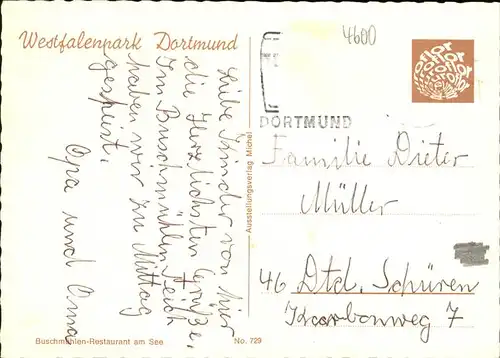 Westfalenpark Dortmund
Liebe Kinder von hier
die Herzlichsten Grüße,
Im Buschmühlen Teich
haben wir zu Mittag
gespeist.
Opa und Oma
Buschmühlen-Restaurant am See
No. 729
Ausstellungsverlag Michel
4600
DORTMUND
Familie Dieter
Müller
46 Dtd. Schüren
Knarbonweg 7